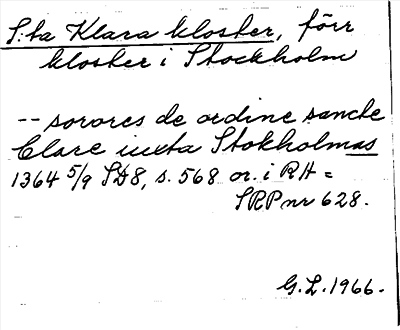 S:ta Klara kloster, förr
kloster i Stockholm
-- sorores de ordine sancte
Clare iuxta Stokholmas
1364 5/9 SD8, s. 568 or. i RH =
SRP nr 628.
G.L. 1966.